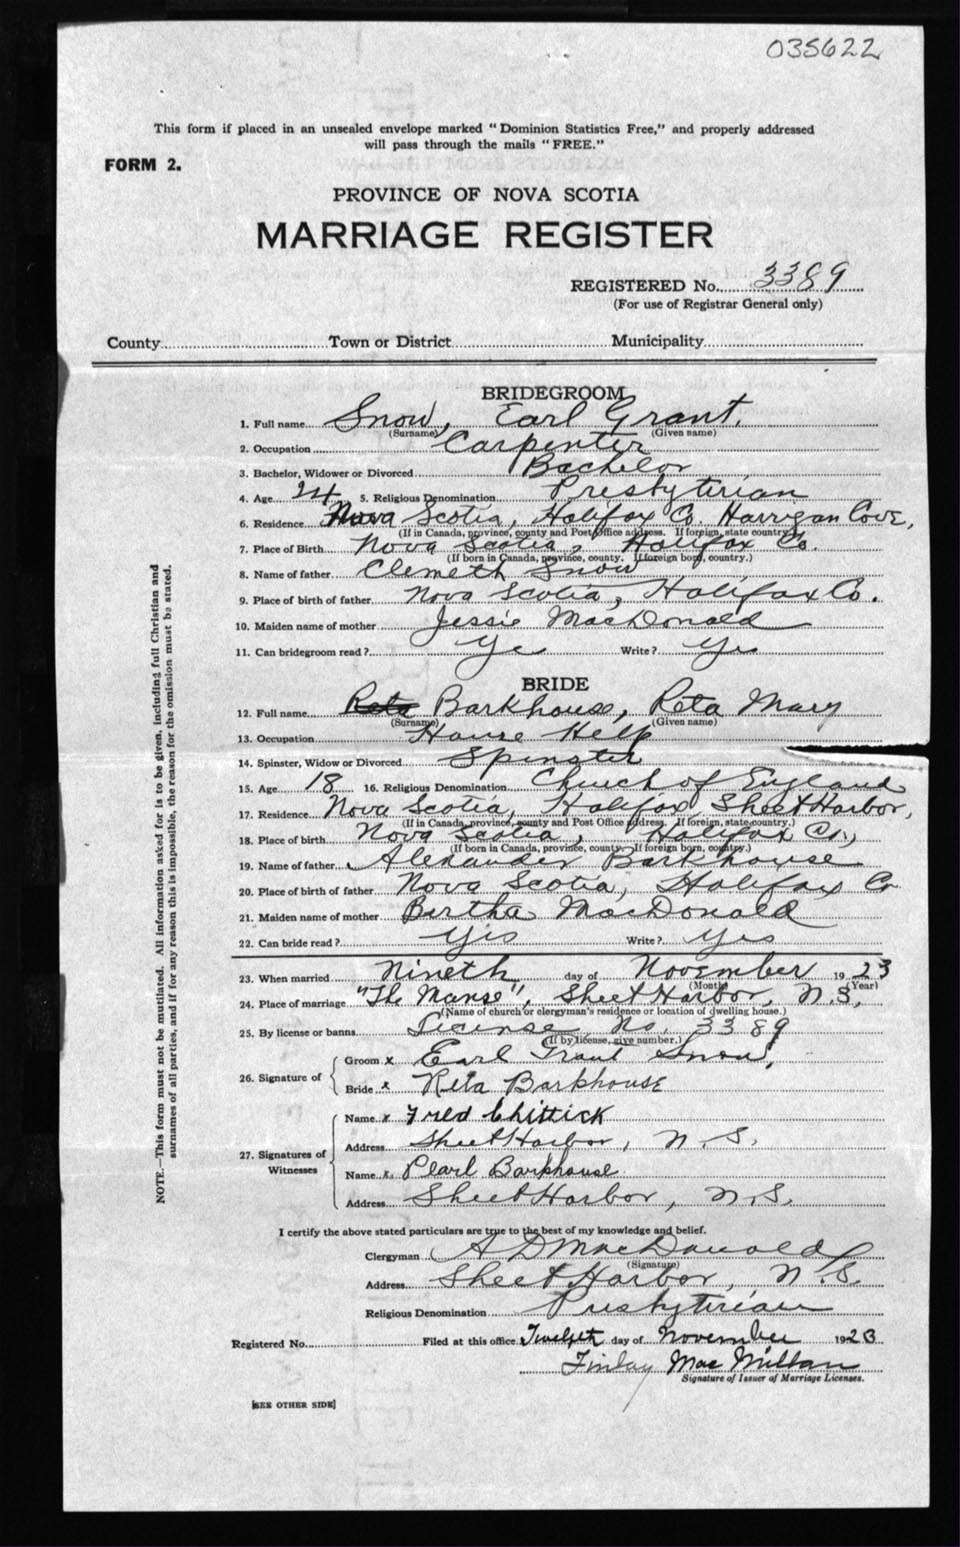 035622
This form if placed in an unsealed envelope marked "Dominion Statistics Free," and properly addressed
will pass through the mails "FREE."
FORM 2.
PROVINCE OF NOVA SCOTIA
MARRIAGE REGISTER
REGISTERED No. 3389
(For use of Registrar General only)
County Town or District Municipality
BRIDEGROOM
1. Full name Snow, Earl Grant.
(Surname) (Given name)
2. Occupation Carpenter
3. Bachelor, Widower or Divorced Bachelor
4. Age 24 5. Religious Denomination Presbyterian
6. Residence Nova Scotia, Halifax Co. Harrigan Cove,
(If in Canada, province, county and Post Office address. If foreign, state country)
7. Place of Birth Nova Scotia, Halifax Co.
(If born in Canada, province, county. If foreign born, country.)
8. Name of father Clemeth Snow
9. Place of birth of father Nova Scotia, Halifax Co.
10. Maiden name of mother Jessie MacDonald
11. Can bridegroom read? Yes Write? Yes
BRIDE
12. Full name Reta Barkhouse, Reta Mary
(Surname) (Given name)
13. Occupation House Help
14. Spinster, Widow or Divorced Spinster
15. Age 18 16. Religious Denomination Church of England
17. Residence Nova Scotia, Halifax, Sheet Harbor,
(If in Canada, province, county and Post Office address. If foreign, state country.)
18. Place of birth Nova Scotia, Halifax Co.,
(If born in Canada, province, county. If foreign born, country.)
19. Name of father Alexander Barkhouse
20. Place of birth of father Nova Scotia, Halifax Co
21. Maiden name of mother Bertha MacDonald
22. Can bride read? Yes Write? Yes
23. When married Nineth day of November 1923
(Month) (Year)
24. Place of marriage "The Manse", Sheet Harbor, N.S.
(Name of church or clergyman's residence or location of dwelling house.)
25. By license or banns License No. 3389
(If by license, give number.)
26. Signature of Groom x Earl Grant Snow,
Bride x Reta Barkhouse
27. Signatures of Witnesses Name x Fred Chittick
Address Sheet Harbor, N.S.
Name x Pearl Barkhouse
Address Sheet Harbor, N.S.
I certify the above stated particulars are true to the best of my knowledge and belief.
Clergyman A D MacDonald
(Signature)
Address Sheet Harbor, N.S.
Religious Denomination Presbyterian
Registered No. Filed at this office Twelpth day of November 1923
Finlay MacMillan
Signature of Issuer of Marriage Licenses.
[SEE OTHER SIDE]
NOTE.—This form must not be mutilated. All information asked for is to be given, including full Christian and
surnames of all parties, and if for any reason this is impossible, the reason for the omission must be stated.